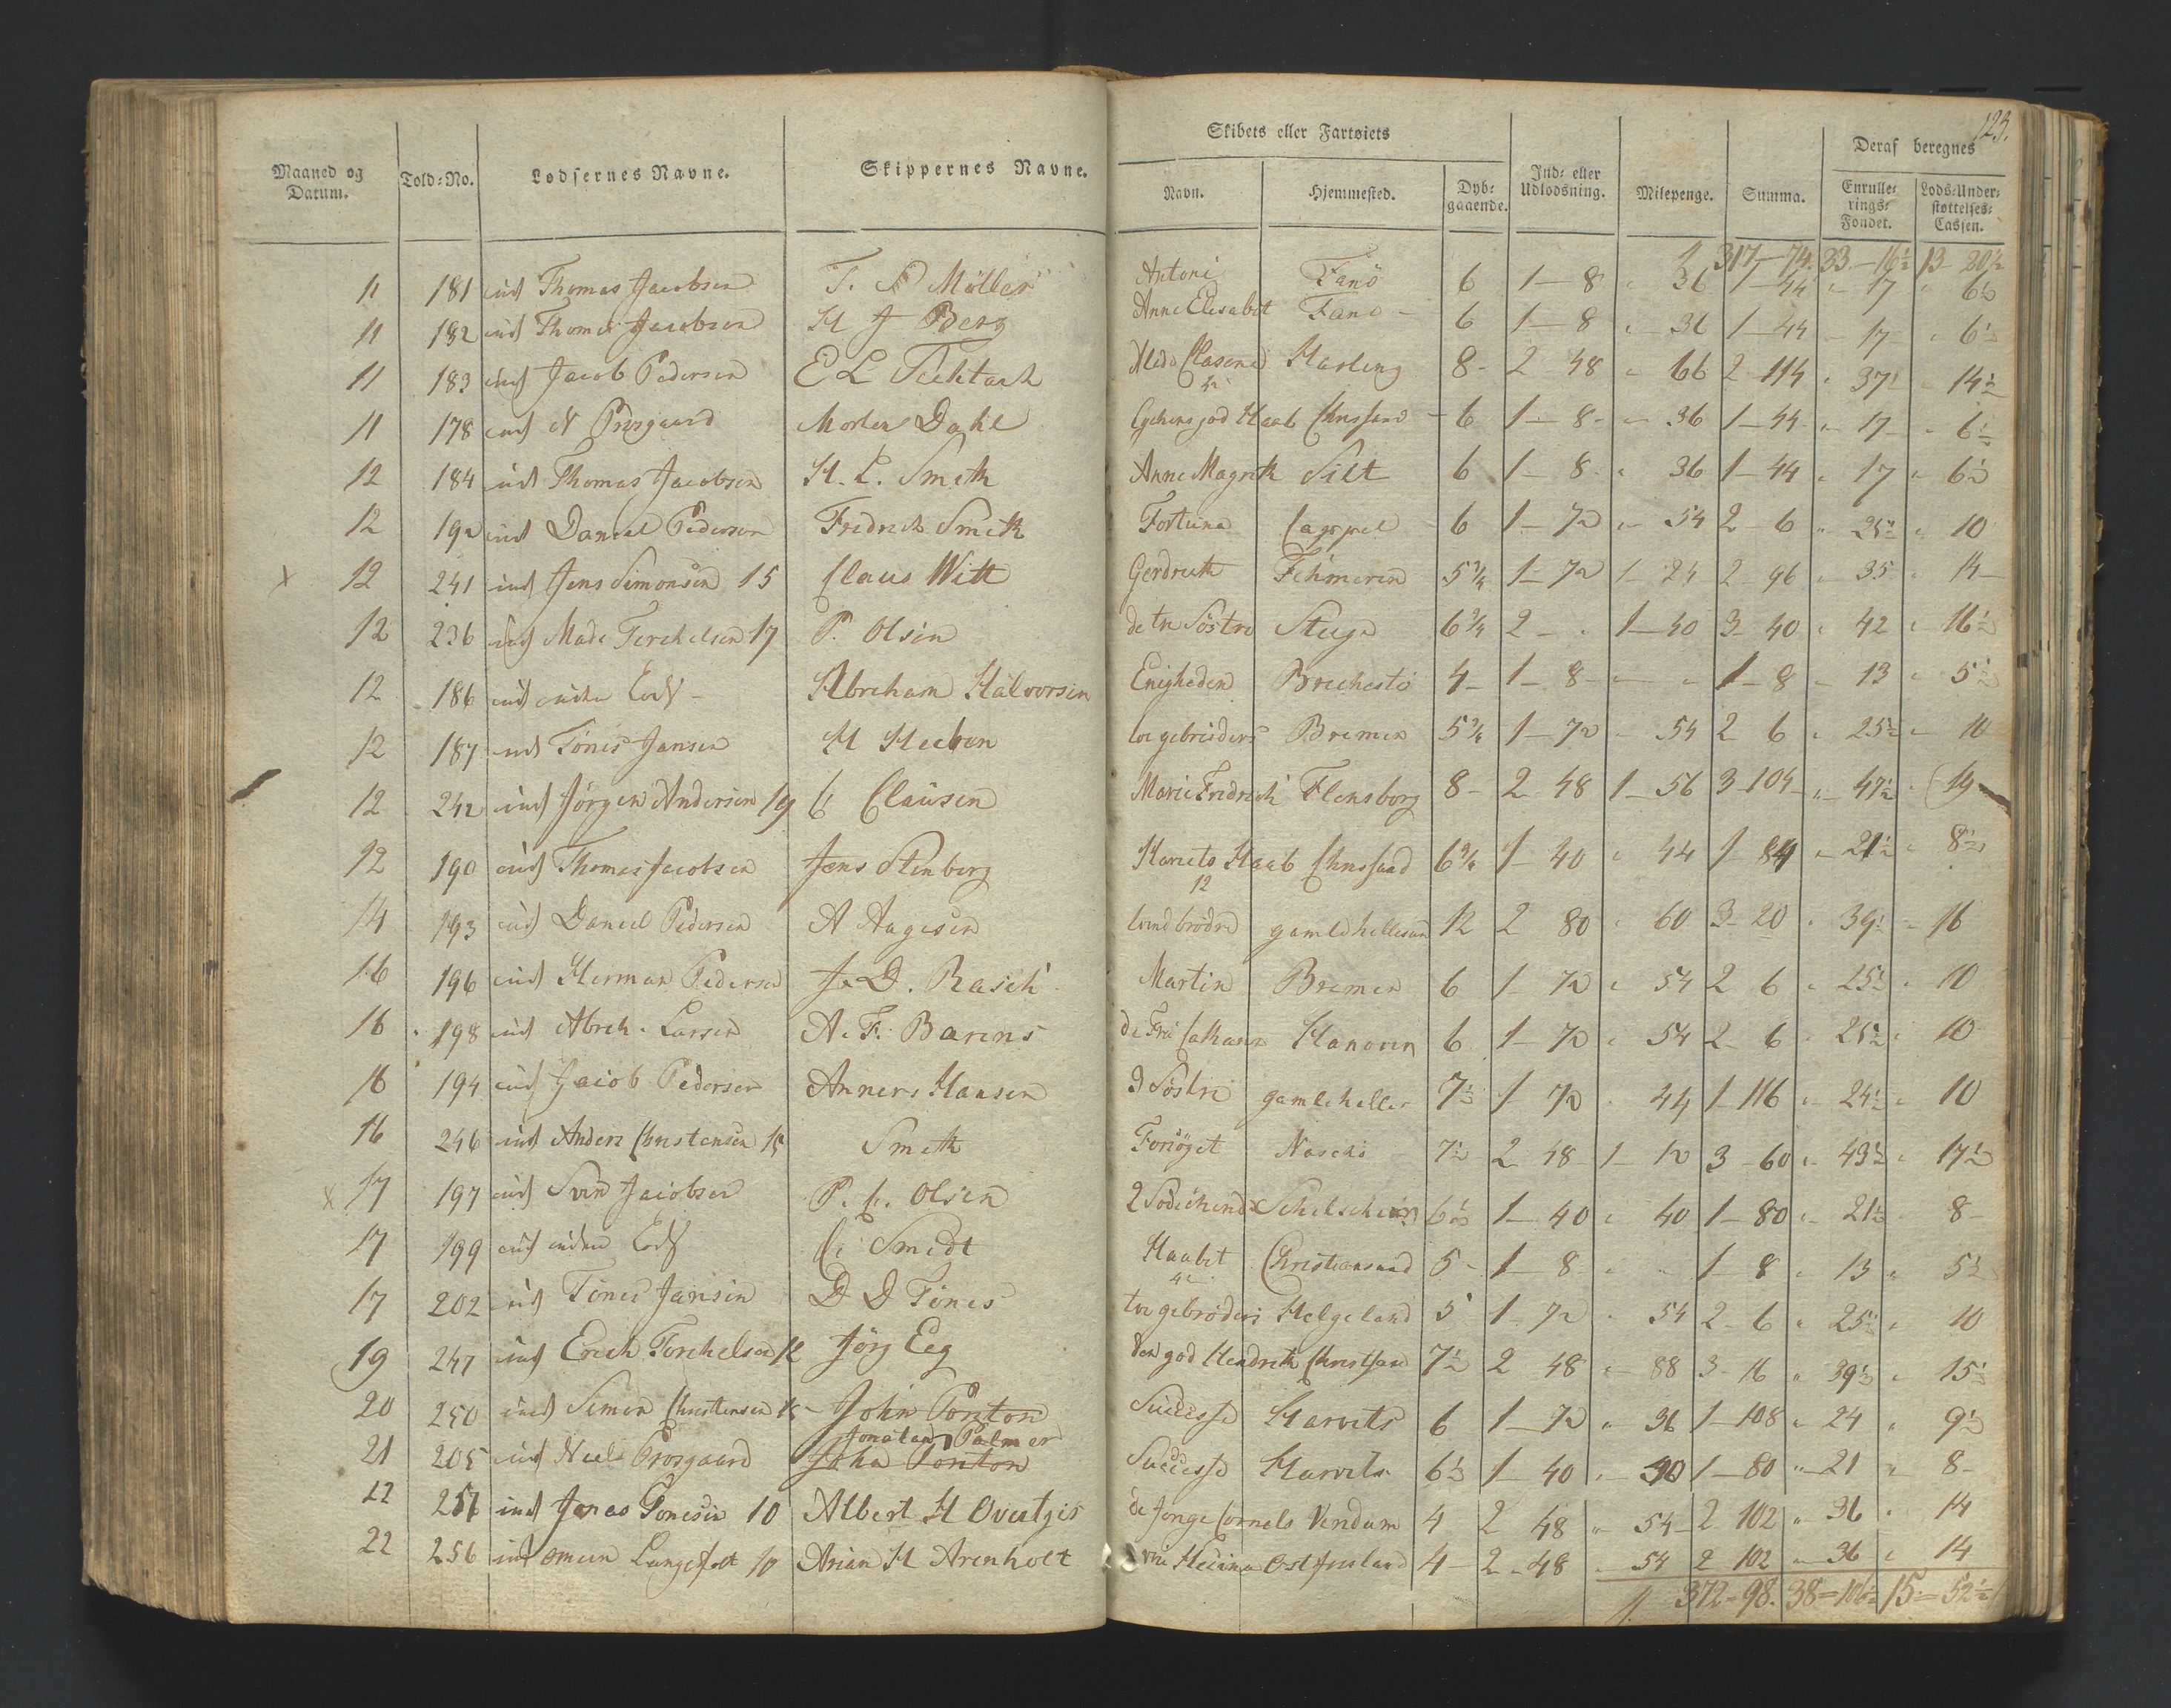 123.
Skibets eller Fartøiets
Deraf beregnes
Maaned og Datum.
Told-No.
Lodsernes Navne.
Skippernes Navne.
Navn.
Hjemmested.
Dyb-gaaende.
Ind- eller Udlodsning.
Milepenge.
Summa.
Enrulle-rings-Fondet.
Lods-Under-støttelses-Cassen.
317 - 74 33 - 16½ 13 - 20½
11 181 ind Thomas Jacobsen T. P Möller Antoni Fanö 6 1 - 8 " 36 1 - 44 " 17 " 6½
11 182 ind Thomas Jacobsen H J Berg Anne Elisabet Fanö - 6 1 - 8 " 36 1 - 44 - 17 " 6½
11 183 ind Jacob Pedersen E L Harling 8 - 2 48 " 66 2 114 " 37½ " 14½
11 178 ind N Morten Dahl god Haab Chrissand - 6 1 - 8 - " 36 1 - 44 " 17 " 6½
12 184 ind Thomas Jacobsen H. L. Smith Anne Magreth Silt 6 1 - 8 - " 36 1 - 44 " 17 " 6½
12 192 ind Daniel Pedersen Fredrich Smith Fortuna 6 1 - 72 " 54 2 6 " 25½ " 10
x 12 241 ind Jens Simonsen 15 Claus Witt Gerdruth Fehmeren 5¾ 1 - 72 1 - 24 2 - 96 " 35 " 14
12 236 ind Mads Terchelsen 17 P. Olsen de tre Söstre Stege 6¾ 2 - " 1 - 40 3 - 40 " 42 " 16½
12 186 ind uden Lods - Abreham Halvorsen Enigheden Brechestö 4 - 1 - 8 - " " 1 - 8 - 13 " 5½
12 187 ind Tönis Jansen H gebreiders Bremen 5¾ 1 - 72 " 54 2 6 " 25½ " 10
12 242 ind Jörgen Andersen 19 C Clausen Marie Fredrich Flensborg 8 - 2 48 1 - 56 3 - 104 " 47½ " 19
12 190 ind Thomas Jacobsen Jens Stenberg Haab Chrissand 6¾ 1 40 " 44 1 - 84 " 21½ " 8½
12
14 193 ind Daniel Pedersen A Aagesen gamlehellesun 12 2 80 " 60 3 - 20 " 39½ - 16
16 196 ind Herman Pedersen J. D. Rasch Martin Bremen 6 1 72 " 54 2 6 " 25½ " 10
16 198 ind Abreh. Larsen A. F. Barens Hanoven 6 1 - 72 " 54 2 - 6 " 25½ " 10
16 194 ind Jacob Pedersen Anners Hansen 3 Söstre gamleheller 7½ 1 72 " 44 1 - 116 " 24½ " 10
16 246 ind Anders Christensen 15 Smith Forsöget 7½ 2 48 - 1 - 12 3 - 60 " 43½ " 17½
x 17 197 ind Sven Jacobsen P. C. Olsen 6½ 1 - 40 " 40 1 - 80 " 21½ 8 -
17 199 ind uden Lods C. Smidt Haabet Christiansand 5 - 1 8 " " 1 - 8 " 13 " 5½
17 202 ind Tönes Jansen D D Tönes tre gebröders Helgeland 5 1 - 72 " 54 2 - 6 " 25½ " 10
19 247 ind Erich Torchelsen 12 Jörg Eeg den god Hendrich Christsand 7½ 2 48 " 88 3 - 16 " 39½ " 15½
20 250 ind Simon Christensen 15 - John Ponton Successe Harvits 6 1 - 72 " 36 1 - 108 " 24 " 9½
Jonatan Palmer
21 205 ind Niels John Ponton Successe Harvits 6½ 1 - 40 " 40 1 - 80 " 21 " 8 -
22 257 ind Jonas Tonesen 10 Albert H Overtges de Jonge Cornels Vendum 4 2 48 " 54 - 2 102 " 36 " 14
22 256 ind omun Langefelt 10 Arian H Arenholt Ostfriesland 4 - 2 - 48 - 54 2 - 102 " 36 " 14
372 - 98. 38 - 106½ 15 - 52½